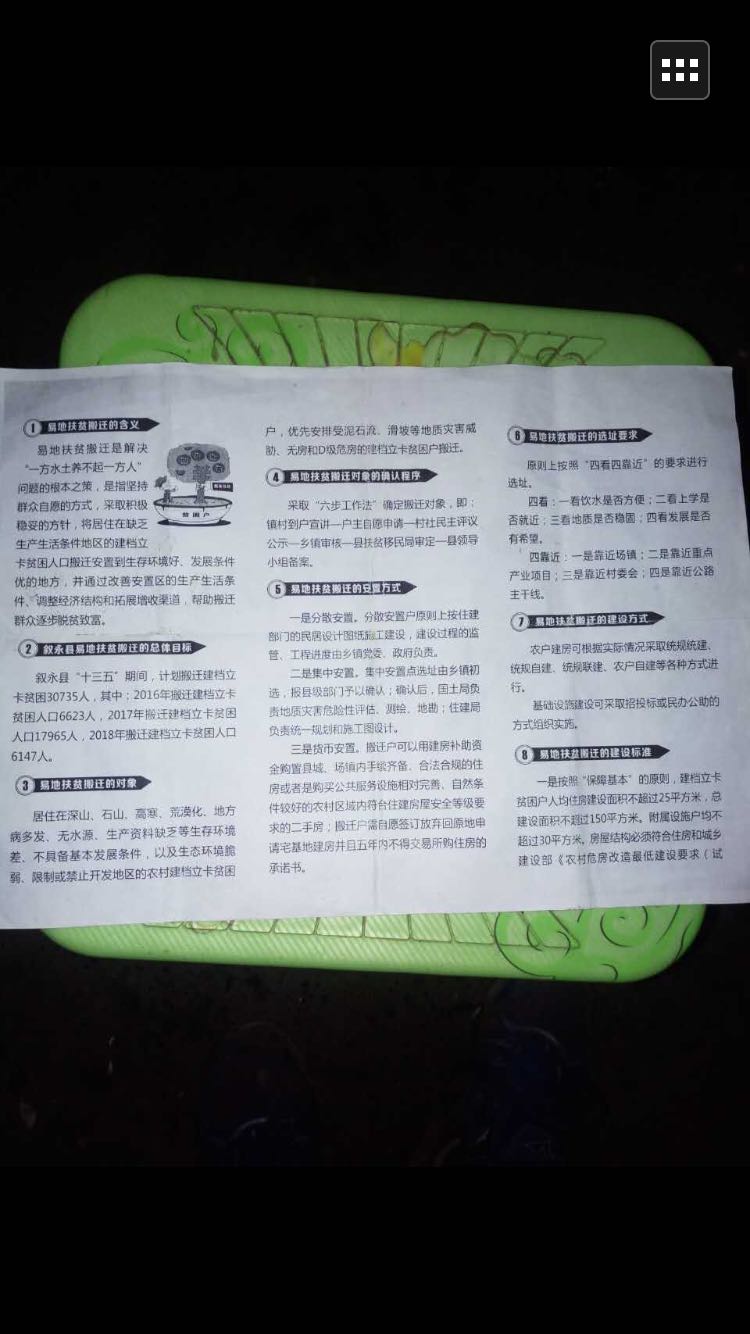 1 易地扶贫搬迁的含义
易地扶贫搬迁是解决
“一方水土养不起一方人”
问题的根本之策，是指坚持
群众自愿的方式，采取积极
稳妥的方针，将居住在缺乏
生产生活条件地区的建档立
卡贫困人口搬迁安置到生存环境好、发展条件
优的地方，并通过改善安置区的生产生活条
件、调整经济结构和拓展增收渠道，帮助搬迁
群众逐步脱贫致富。
贫困户
2 叙永县易地扶贫搬迁的总体目标
叙永县“十三五”期间，计划搬迁建档立
卡贫困30735人，其中：2016年搬迁建档立卡
贫困人口6623人，2017年搬迁建档立卡贫困
人口17965人，2018年搬迁建档立卡贫困人口
6147人。
3 易地扶贫搬迁的对象
居住在深山、石山、高寒、荒漠化、地方
病多发、无水源、生产资料缺乏等生存环境
差、不具备基本发展条件，以及生态环境脆
弱、限制或禁止开发地区的农村建档立卡贫困
户，优先安排受泥石流、滑坡等地质灾害威
胁、无房和D级危房的建档立卡贫困户搬迁。
4 易地扶贫搬迁对象的确认程序
采取“六步工作法”确定搬迁对象，即：
镇村到户宣讲—户主自愿申请—村社民主评议
公示—乡镇审核—县扶贫移民局审定—县领导
小组备案。
5 易地扶贫搬迁的安置方式
一是分散安置。分散安置户原则上按住建
部门的民居设计图纸施工建设，建设过程的监
管、工程进度由乡镇党委、政府负责。
二是集中安置。集中安置点选址由乡镇初
选，报县级部门予以确认；确认后，国土局负
责地质灾害危险性评估、测绘、地勘；住建局
负责统一规划和施工图设计。
三是货币安置。搬迁户可以用建房补助资
金购置县城、场镇内手续齐备、合法合规的住
房或者是购买公共服务设施相对完善、自然条
件较好的农村区域内符合住建房屋安全等级要
求的二手房；搬迁户需自愿签订放弃回原地申
请宅基地建房并且五年内不得交易所购住房的
承诺书。
6 易地扶贫搬迁的选址要求
原则上按照“四看四靠近”的要求进行
选址。
四看：一看饮水是否方便；二看上学是
否就近；三看地质是否稳固；四看发展是否
有希望。
四靠近：一是靠近场镇；二是靠近重点
产业项目；三是靠近村委会；四是靠近公路
主干线。
7 易地扶贫搬迁的建设方式
农户建房可根据实际情况采取统规统建、
统规自建、统规联建、农户自建等各种方式进
行。
基础设施建设可采取招投标或民办公助的
方式组织实施。
8 易地扶贫搬迁的建设标准
一是按照“保障基本”的原则，建档立卡
贫困户人均住房建设面积不超过25平方米，总
建设面积不超过150平方米。附属设施户均不
超过30平方米。房屋结构必须符合住房和城乡
建设部《农村危房改造最低建设要求（试